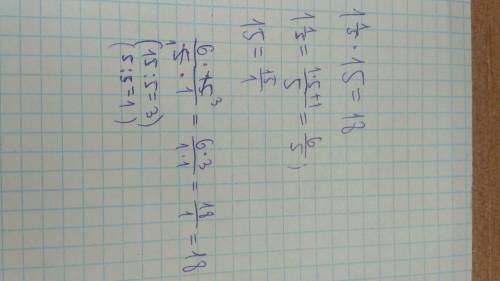 1 1/5 · 15 = 18
1 1/5 = (1·5+1)/5 = 6/5 ;
15 = 15/1
(6 · 15³)/(5₁ · 1) = (6·3)/(1·1) = 18/1 = 18
(15:5=3)
(5:5=1)